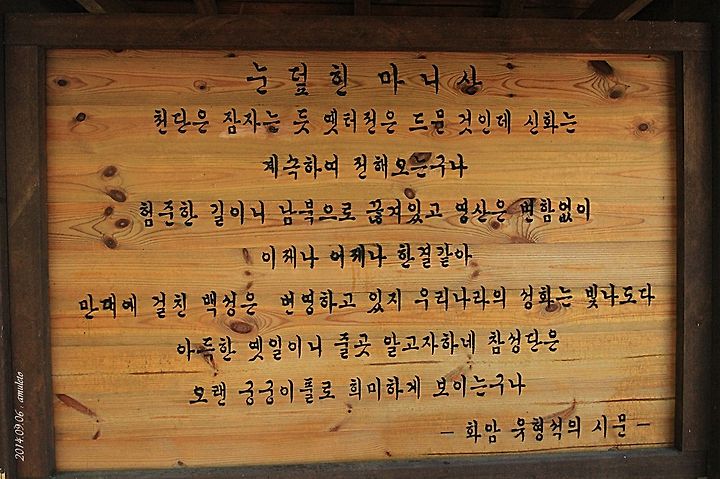 눈덮힌 마니산
천단은 잠자는 듯 옛터전은 드문 것인데 신화는
계속하여 전해오는구나
험준한 길이니 남북으로 끊겨있고 영산은 변함없이
이제나 어제나 한결같아
만대에 걸친 백성은 번영하고 있지 우리나라의 성화는 빛나도다
아득한 옛일이니 줄곳 알고자하네 참성단은
오랜 궁궁이풀로 희미하게 보이는구나
- 화암 유형석의 시문 -
2014.09.06 . amuleto